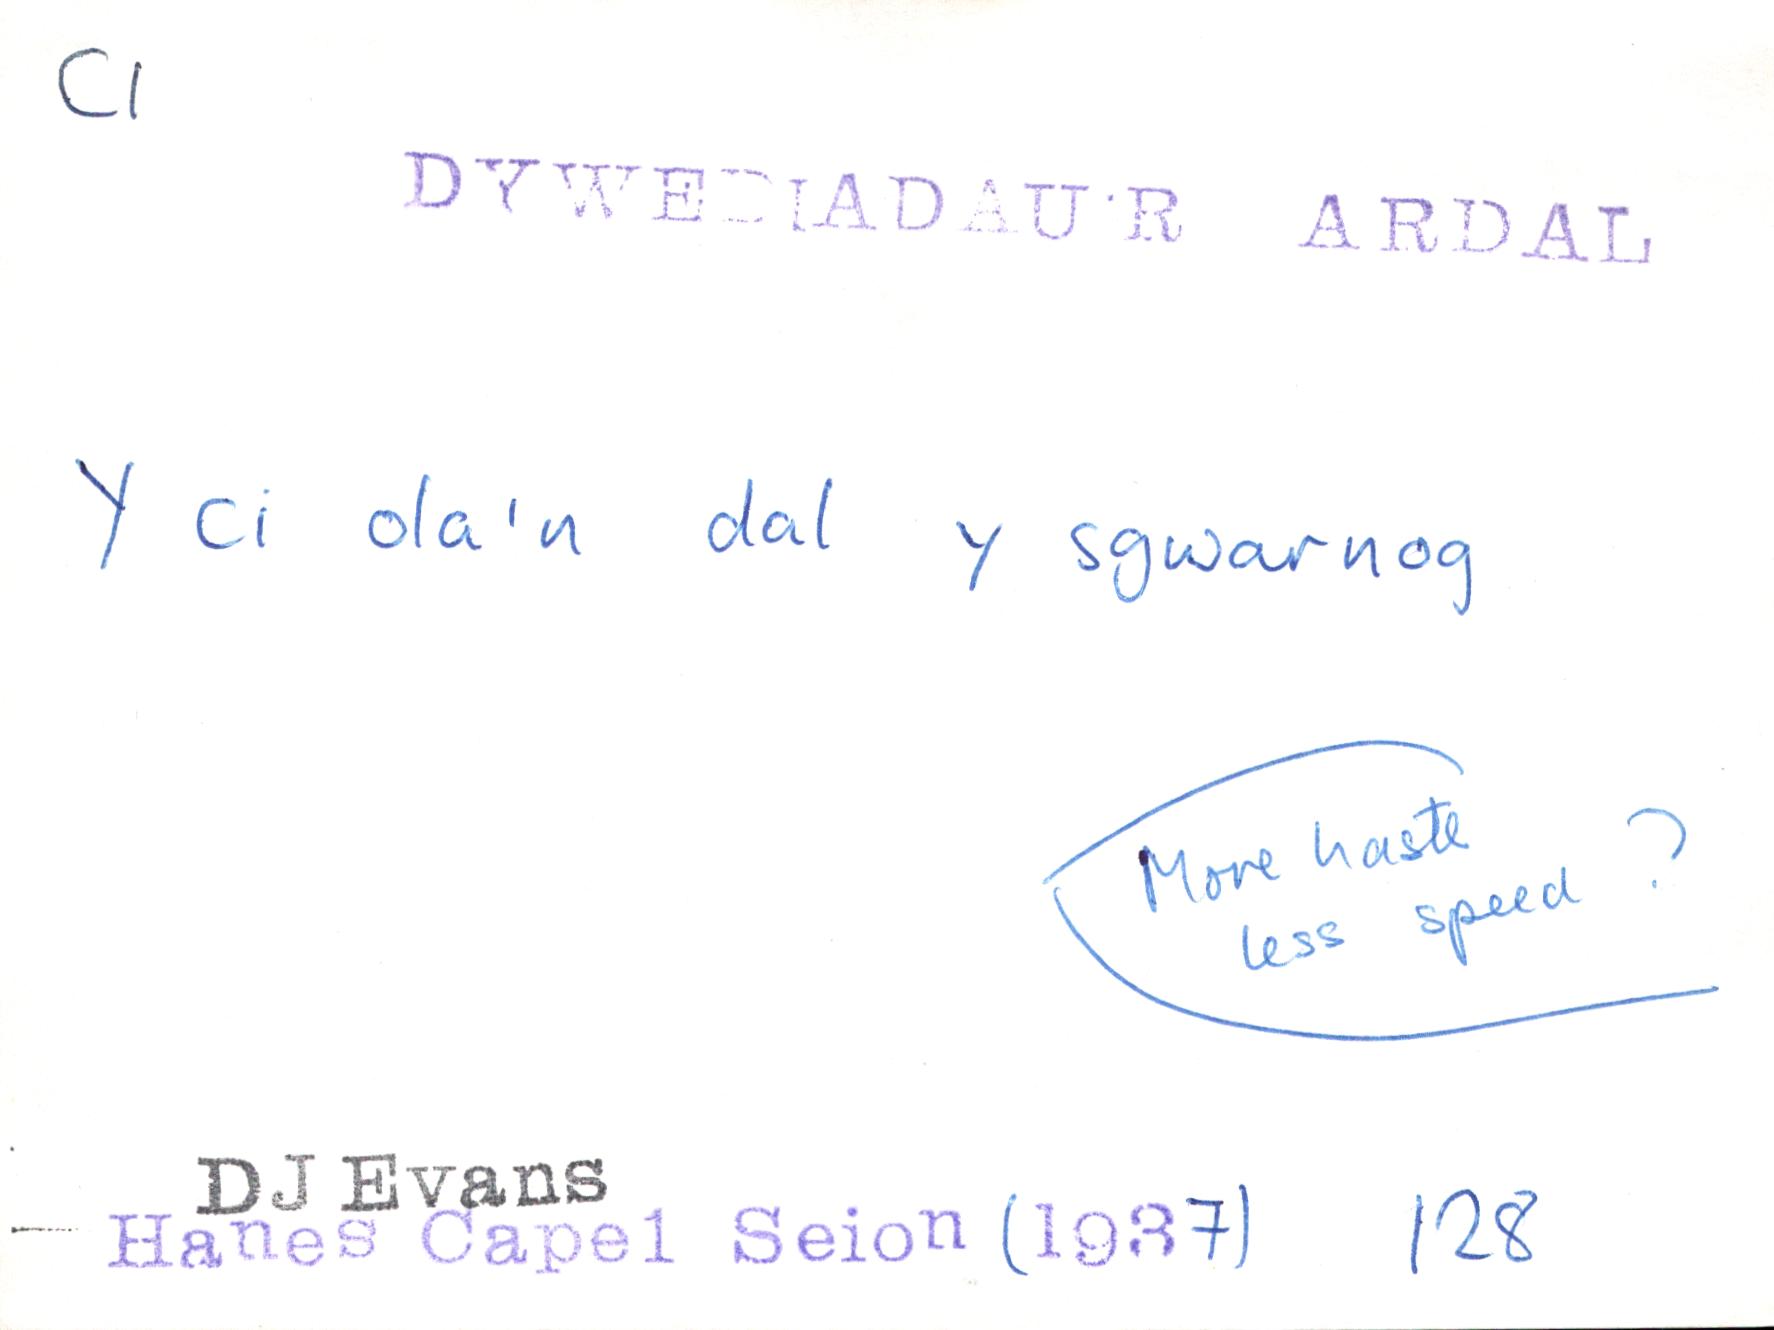 CI
DYWEDIADAU'R ARDAL
Y ci ola'n dal y sgwarnog
More haste
less speed?
DJ Evans
Hanes Capel Seion (1937) 128